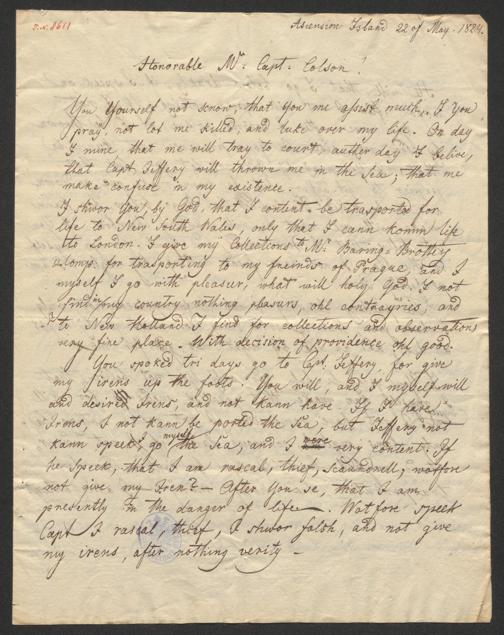 Ascension Island 22 of May. 1824.
Honorable Mr: Capt: Colson!
You Yourself not know, that You me assist much,. I You
pray, not lot me killed, and take over my life. On day
I mine that me will tray to court, auther day I belive,
that Capt Jeffery will thrown me in the Sea; that me
make confuse in my existence.
I shwor You by God, that I content be trasported for
life to New South Wales, only that I cann komm life
to London. I give my Collections to Mr: Baring-
Comp for trasporting to my freinds of Prague and I
myself I go with pleasur, what will holy God. I not
find my country nothing pleasurs, ohl contrayries, and
te New Holland I find for collections and observations
very fine place. With decision of providence ohl good.
You spoked tri days go to Capt Jeffery, for give
my irens up the foots. You will, and I myself will
and desired Irens, and not kann have. If I have
Irens, I not kann be ported the Sea, but Jeffery not
kann speek; go myself the Sea, and I were very content. If
he Speek, that I am rascal, thief, scaundrell; watfore
not give my Irens? — After You se, that I am
presently in the danger of life. Watfore speek
Capt I rascal, thief, I shwor falsh, and not give
my irens, after nothing verity —